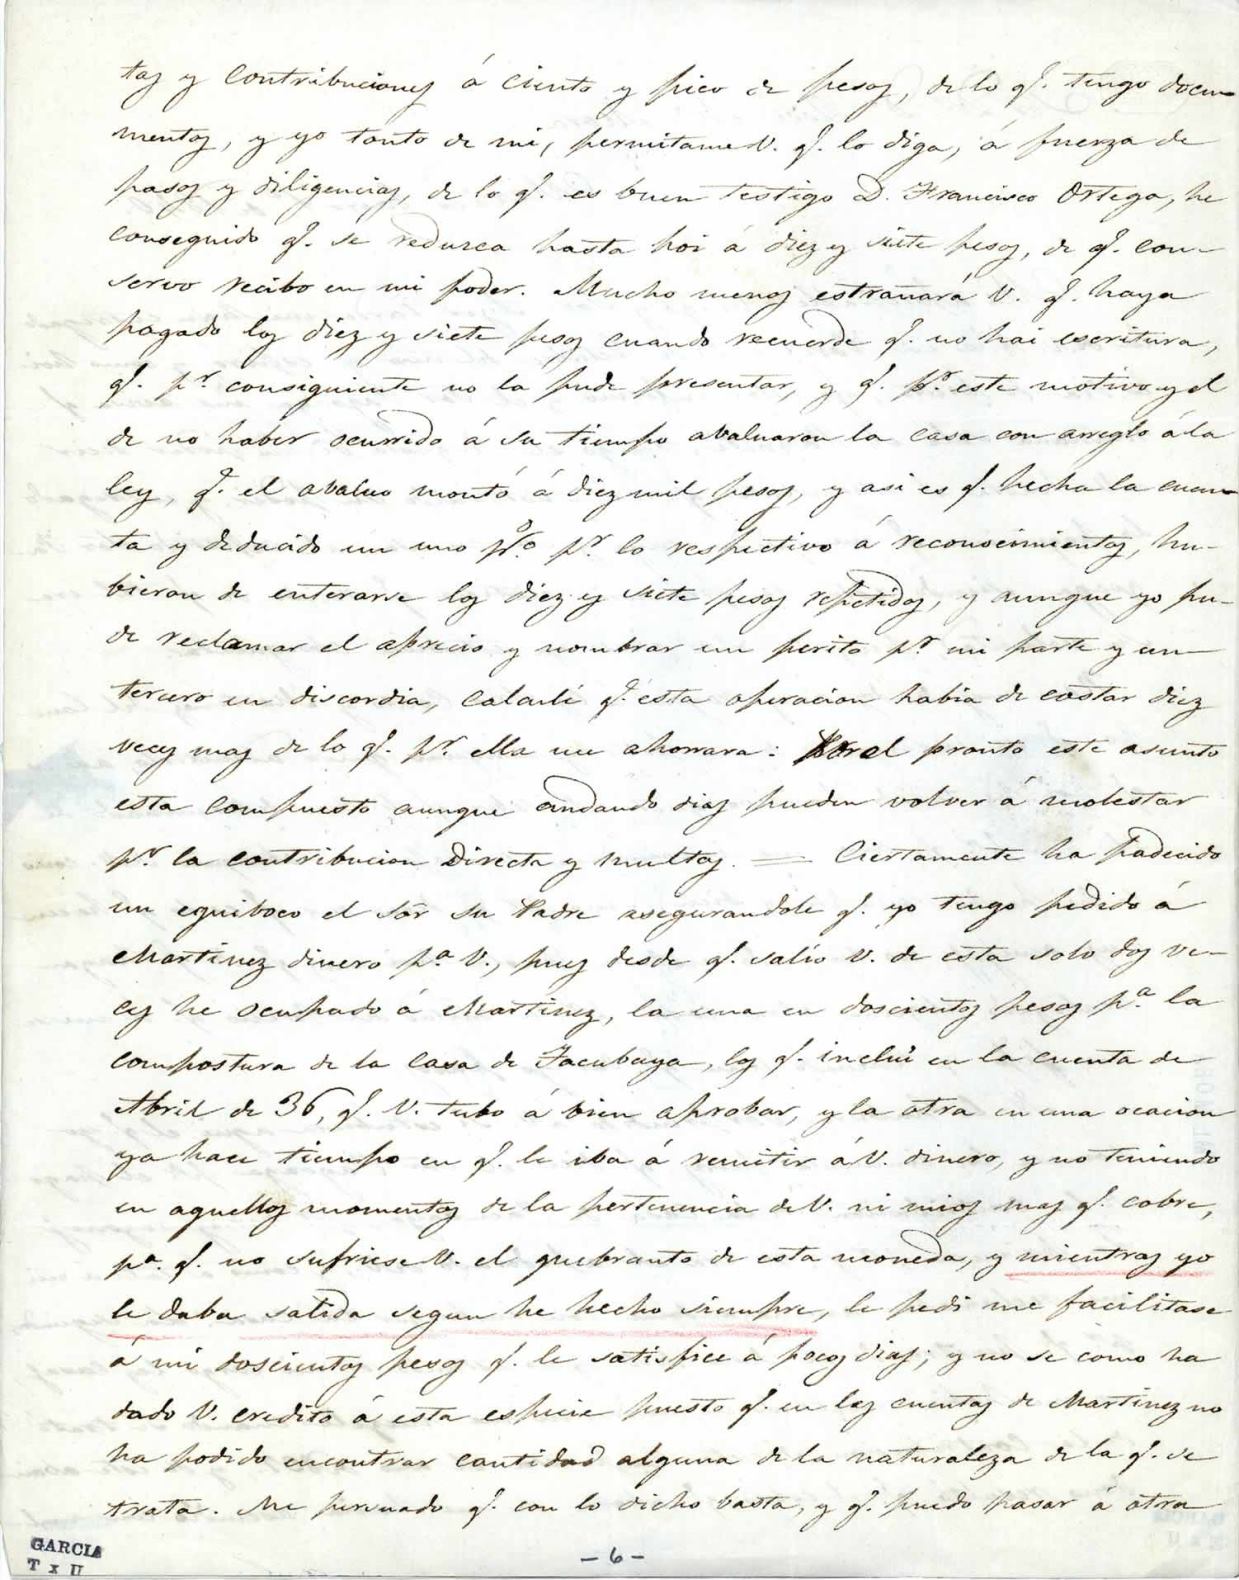 tas y Contribuciones á ciento y pico de pesos, de lo q.e tengo docu-
mentos, y yo tanto de mi, permitame V. q.e lo diga, á fuerza de
pasos y diligencias, de lo q.e es buen testigo D. Francisco Ortega, he
conseguido q.e se redusca hasta hoi á diez y siete pesos, de q.e con-
servo recibo en mi poder. Mucho menos estrañará V. q.e haya
pagado los diez y siete pesos cuando recuerde q.e no hai escritura,
q.e p.r consiguiente no la pude presentar, y q.e p.r este motivo y el
de no haber ocurrido á su tiempo abaluaron la casa con arreglo á la
ley, q.e el abaluo montó á diez mil pesos, y asi es q.e hecha la cuen-
ta y deducido un uno p%o p.r lo respectivo á reconocimientos, hu-
bieron de enterarse los diez y siete pesos repetidos, y aunque yo pu-
de reclamar el aprecio y nombrar un perito p.r mi parte y un
tercero en discordia, calculé q.e esta operacion habia de costar diez
veces mas de lo q.e p.r ella me ahorrara: Por el pronto este asunto
esta compuesto aunque andando dias pueden volver á molestar
p.r la contribucion Directa y multas. = Ciertamente ha padecido
un equiboco el Sõr su Padre asegurandole q.e yo tengo pedido á
Martinez dinero p.a V., pues desde q.e salió V. de esta solo dos ve-
ces he ocupado á Martinez, la una en doscientos pesos p.a la
compostura de la casa de Tacubaya, los q.e incluí en la cuenta de
Abril de 36, q.e V. tubo á bien aprobar, y la otra en una ocacion
ya hace tiempo en q.e le iba á remitir á V. dinero, y no teniendo
en aquellos momentos de la pertenencia de V. ni mios mas q.e cobre,
p.a q.e no sufriese V. el quebranto de esta moneda, y mientras yo
le daba salida segun he hecho siempre, le pedi me facilitase
á mi doscientos pesos q.e le satisfice á pocos dias; y no se como ha
dado V. credito á esta especie puesto q.e en las cuentas de Martinez no
ha podido encontrar cantidad alguna de la naturaleza de la q.e se
trata. Me persuado q.e con lo dicho basta, y q.e puedo pasar á otra
- 6 -
GARCIA
T x II